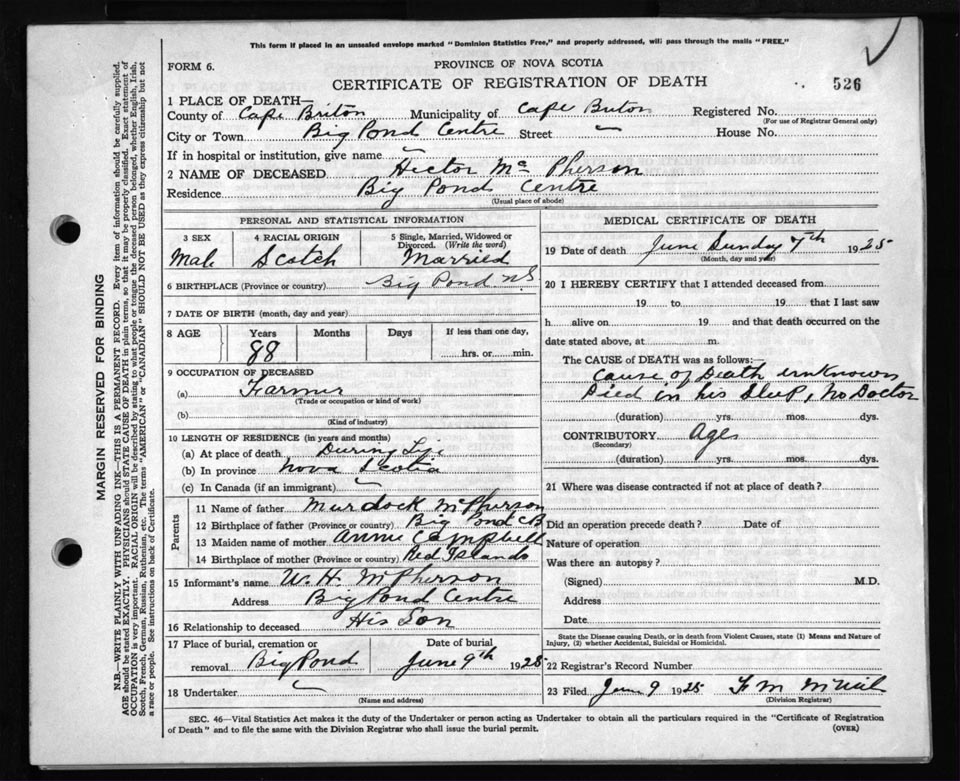 This form if placed in an unsealed envelope marked "Dominion Statistics Free," and properly addressed, will pass through the mails "FREE."
FORM 6.
PROVINCE OF NOVA SCOTIA
CERTIFICATE OF REGISTRATION OF DEATH
526
1 PLACE OF DEATH—
County of Cape Briton Municipality of Cape Briton Registered No.
(For use of Registrar General only)
City or Town Big Pond Centre Street House No.
If in hospital or institution, give name
2 NAME OF DECEASED Hector Mc Pherson
Residence Big Pond Centre
(Usual place of abode)
PERSONAL AND STATISTICAL INFORMATION
3 SEX 4 RACIAL ORIGIN 5 Single, Married, Widowed or Divorced. (Write the word)
Male Scotch Married
6 BIRTHPLACE (Province or country) Big Pond N S
7 DATE OF BIRTH (month, day and year)
8 AGE Years Months Days If less than one day,
88 hrs. or min.
9 OCCUPATION OF DECEASED
(a) Farmer
(Trade or occupation or kind of work)
(b)
(Kind of industry)
10 LENGTH OF RESIDENCE (in years and months)
(a) At place of death During Life
(b) In province Nova Scotia
(c) In Canada (if an immigrant)
Parents
11 Name of father Murdock McPherson
12 Birthplace of father (Province or country) Big Pond C B
13 Maiden name of mother Annie Campbell
14 Birthplace of mother (Province or country) Red Islands
15 Informant's name W. H. McPherson
Address Big Pond Centre
16 Relationship to deceased His Son
17 Place of burial, cremation or removal Big Pond
Date of burial June 9th 1925
18 Undertaker
(Name and address)
MEDICAL CERTIFICATE OF DEATH
19 Date of death June Sunday 7th 1925
(Month, day and year)
20 I HEREBY CERTIFY that I attended deceased from
19 to 19 that I last saw
h alive on 19 and that death occurred on the
date stated above, at m.
The CAUSE of DEATH was as follows:—
Cause of Death unknown
Died in his Sleep, No Doctor
(duration) yrs. mos. dys.
CONTRIBUTORY Age
(Secondary)
(duration) yrs. mos. dys.
21 Where was disease contracted if not at place of death?
Did an operation precede death? Date of
Nature of operation
Was there an autopsy?
(Signed) M.D.
Address
Date
State the Disease causing Death, or in death from Violent Causes, state (1) Means and Nature of
Injury, (2) whether Accidental, Suicidal or Homicidal.
22 Registrar's Record Number
23 Filed June 9 1925 F M McNeil
(Division Registrar)
SEC. 46—Vital Statistics Act makes it the duty of the Undertaker or person acting as Undertaker to obtain all the particulars required in the "Certificate of Registration
of Death" and to file the same with the Division Registrar who shall issue the burial permit.
(OVER)
MARGIN RESERVED FOR BINDING
N.B.—WRITE PLAINLY WITH UNFADING INK—THIS IS A PERMANENT RECORD. Every item of information should be carefully supplied.
AGE should be stated EXACTLY. PHYSICIANS should STATE CAUSE OF DEATH in plain terms, so that it may be properly classified. Exact statement of
OCCUPATION is very important. RACIAL ORIGIN will be described by stating to what people or tongue the deceased person belonged, whether English, Irish,
Scotch, French, German, Russian, Ruthenian, etc. The terms "AMERICAN" or "CANADIAN" SHOULD NOT BE USED as they express citizenship but not
a race or people. See instructions on back of Certificate.